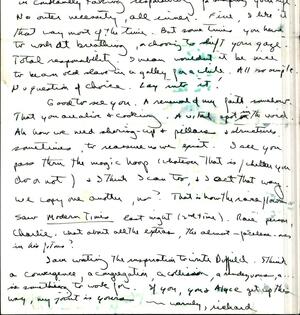 in constantly taking responsibility
No outer necessity, all inner. Fine, I like it
that way most of the time. But some times you have
to work at breathing, choosing to shift your gaze.
Total responsibility. I mean wouldn't it be nice
to be an old slave in a galley, for a while. All so simple
No question of choice. Lay into it!
Good to see you. A renewal of my faith somehow.
That you are alive & cooking. A wind upon the world.
Ah how we need shoring-up & pillars & structures
sometimes, to reassure our spirit. I see you
pass thru the magic hoop (whatever that is, whether you
do or not) & I think I can too, & I act that way
we copy one another, no? That is how the
Saw Modern Times last night (time). Rare person,
Charlie. What about all the extras. The almost-faceless ones
in his films?
I am waiting the inspiration to invite Duffield. I think
a convergence, a congregation, a collision, a rendezvous,
is something to work for. If you, you & Alyce get up this
way, my joint is yours — warmly, richard